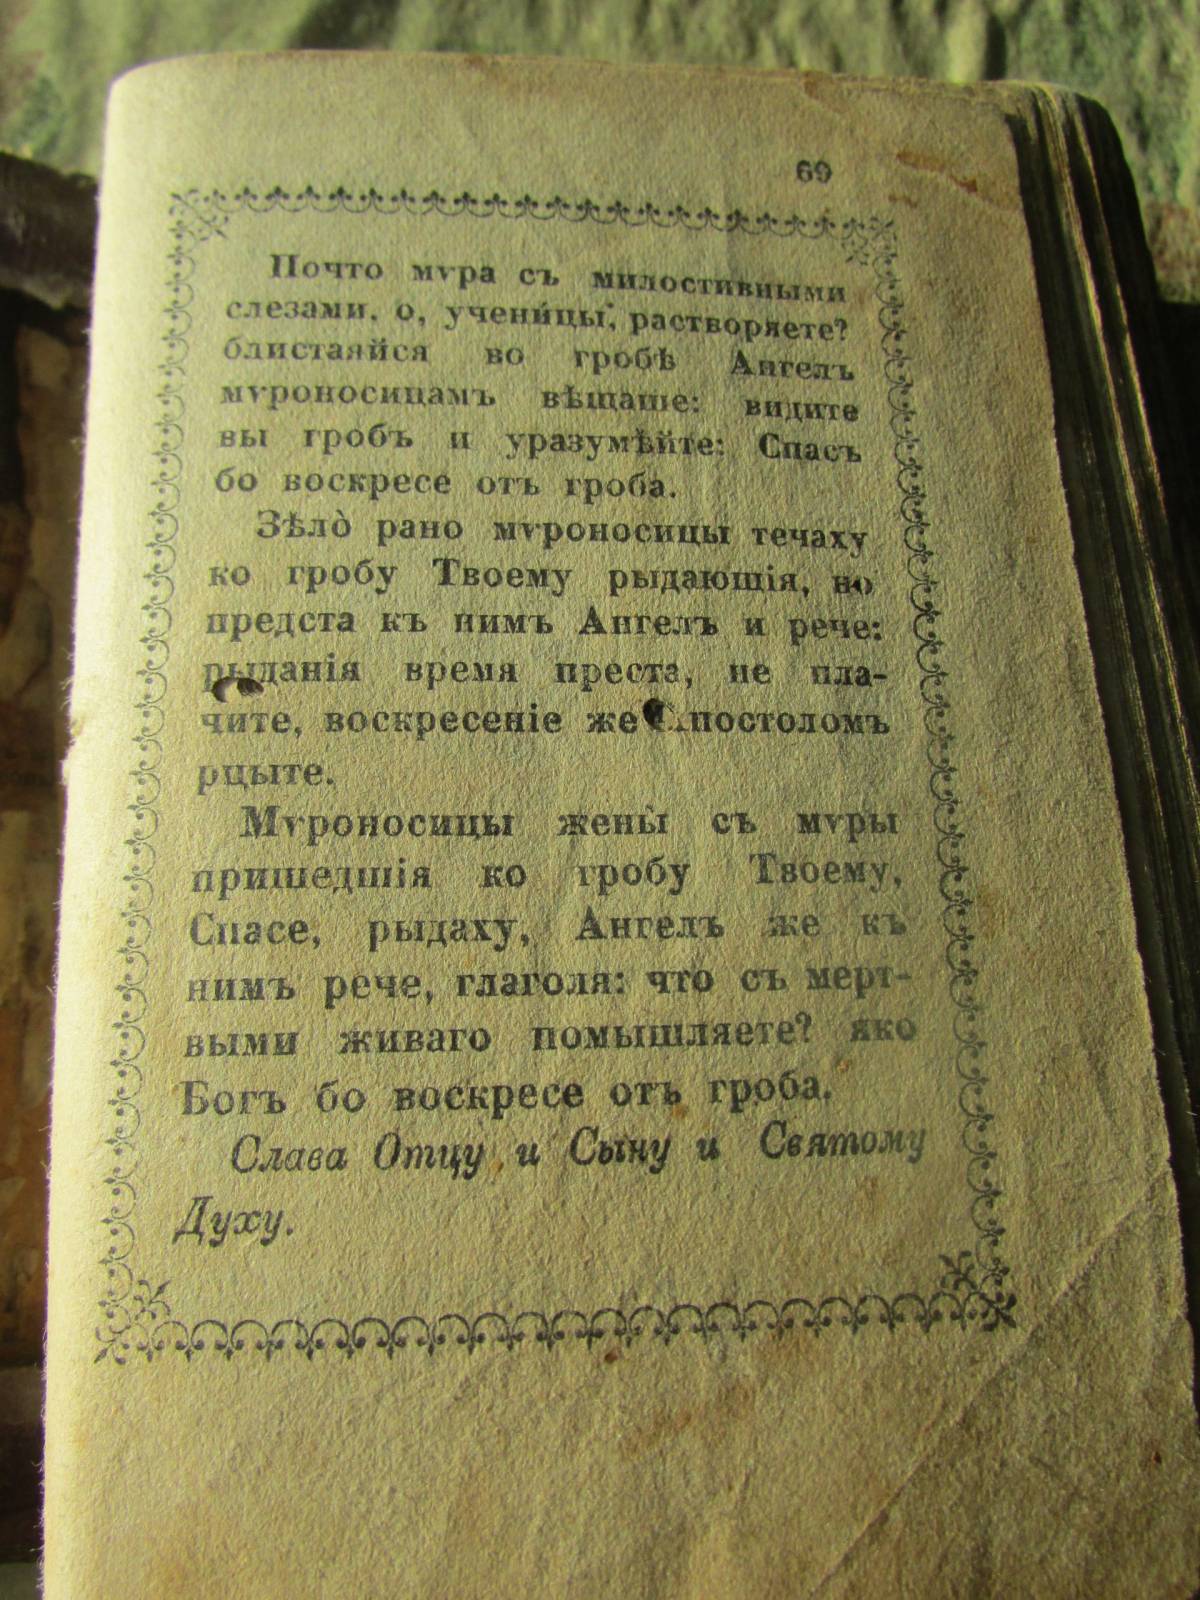 69
Почто мѵра съ милостивными
слезами, о, учени́цы, растворяете?
блистаяйся во гробѣ Ангелъ
мѵроносицамъ вѣщаше: видите
вы гробъ и уразумѣйте: Спасъ
бо воскресе отъ гроба.
Зѣло̀ рано мѵроносицы течаху
ко гробу Твоему рыдающія, но
предста къ нимъ Ангелъ и рече:
рыданія время преста, не пла-
чите, воскресеніе же Апостоломъ
рцыте.
Мѵроносицы жены̀ съ мѵры
пришедшія ко гробу Твоему,
Спасе, рыдаху, Ангелъ же къ
нимъ рече, глаголя: что съ мерт-
выми живаго помышляете? яко
Богъ бо воскресе отъ гроба.
Слава Отцу и Сыну и Святому
Духу.